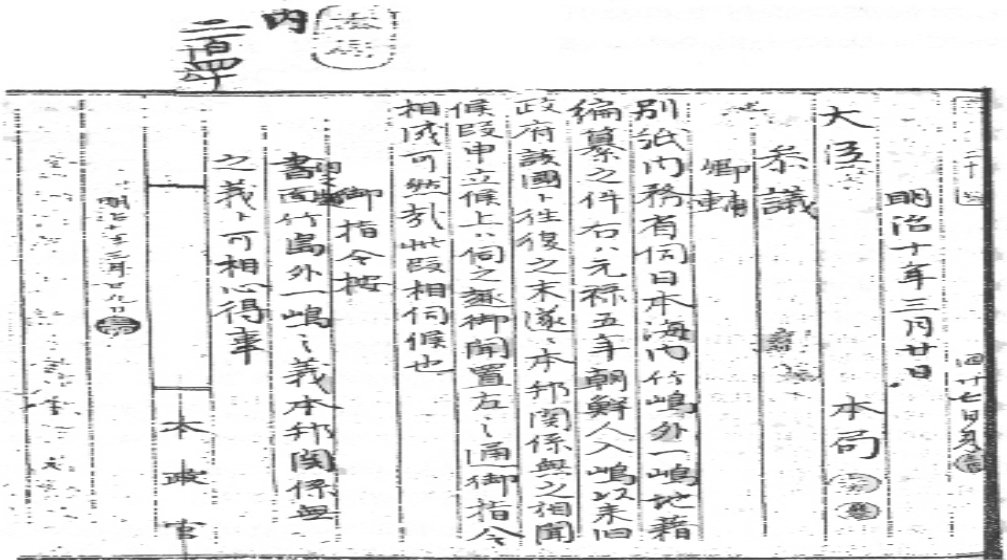 内
二百四十
明治十年三月廿日
大臣
本局
参議
卿輔
別紙内務省伺日本海内竹嶋外一嶋地籍
編纂之件右ハ元禄五年朝鮮人入嶋以来旧
政府該國ト往復之末遂ニ本邦関係無之相聞
候段申立候上ハ伺之趣御聞置左之通御指令
相成可然哉此段相伺候也
御指令按
書面竹島外一嶋之義本邦関係無
之義ト可相心得事
明治十年三月廿九日
本政官